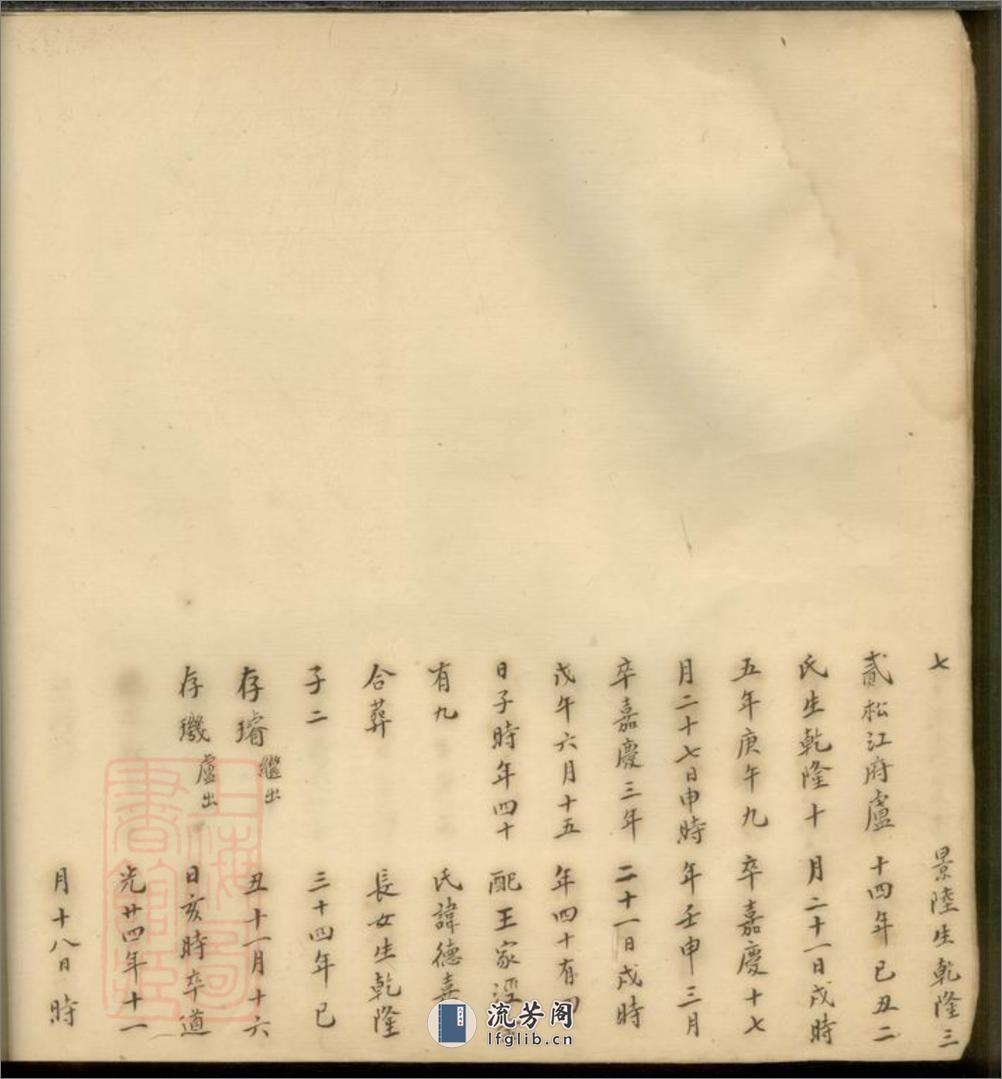 七
貳松江府盧
氏生乾隆十
五年庚午九
月二十七日申時
卒嘉慶三年
戊午六月十五
日子時年四十
有九
合葬
子二
存璿 繼出
存璣 盧出
景陸生乾隆三
十四年已丑二
月二十一日戌時
卒嘉慶十七
年壬申三月
二十一日戌時
年四十有四
配王家涇
氏諱德
長女生乾隆
三十四年已
丑十一月十六
日亥時卒道
光廿四年十一
月十八日 時
上海圖書館藏
流芳阁
lfglib.cn